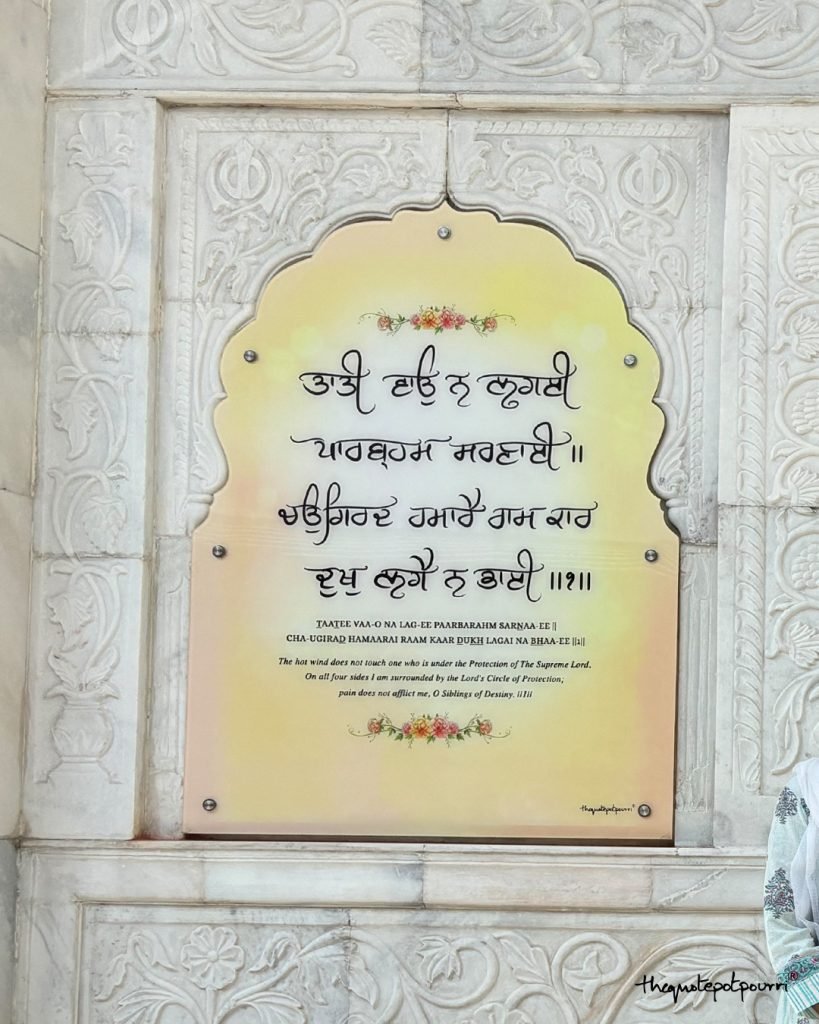 ਤਾਤੀ ਵਾਉ ਨ ਲਗਈ
ਪਾਰਬ੍ਰਹਮ ਸਰਣਾਈ ॥
ਚਉਗਿਰਦ ਹਮਾਰੈ ਰਾਮ ਕਾਰ
ਦੁਖੁ ਲਗੈ ਨ ਭਾਈ ॥੧॥
TAATEE VAA-O NA LAG-EE PAARBARAHM SARNAA-EE ||
CHA-UGIRAD HAMAARAI RAAM KAAR DUKH LAGAI NA BHAA-EE ||1||
The hot wind does not touch one who is under the Protection of The Supreme Lord.
On all four sides I am surrounded by the Lord's Circle of Protection;
pain does not afflict me, O Siblings of Destiny. ||1||
thequotepotpourri®
thequotepotpourri®